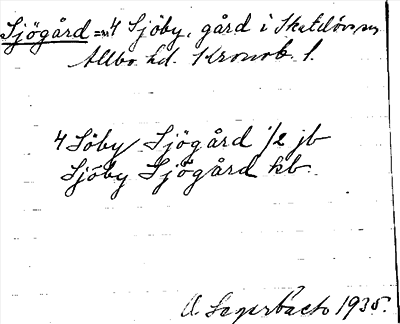 Sjögård = 4 Sjöby, gård i Skatelövs sn
Allbo hd. Kronob. l.
4 Söby Sjögård 1/2 jb
Sjöby Sjögård kb.
A. Lagerbäck 1935.